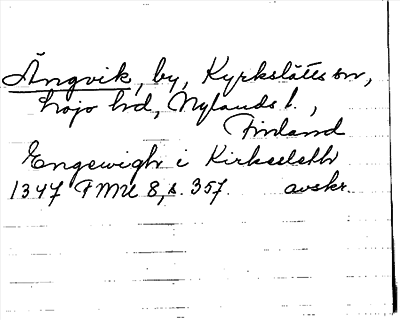 Ängvik, by, Kyrkslätts sn,
Lojo hd, Nylands l.,
Finland
Engewigh i Kirkseleth
1347 FMU 8, s. 357. avskr.